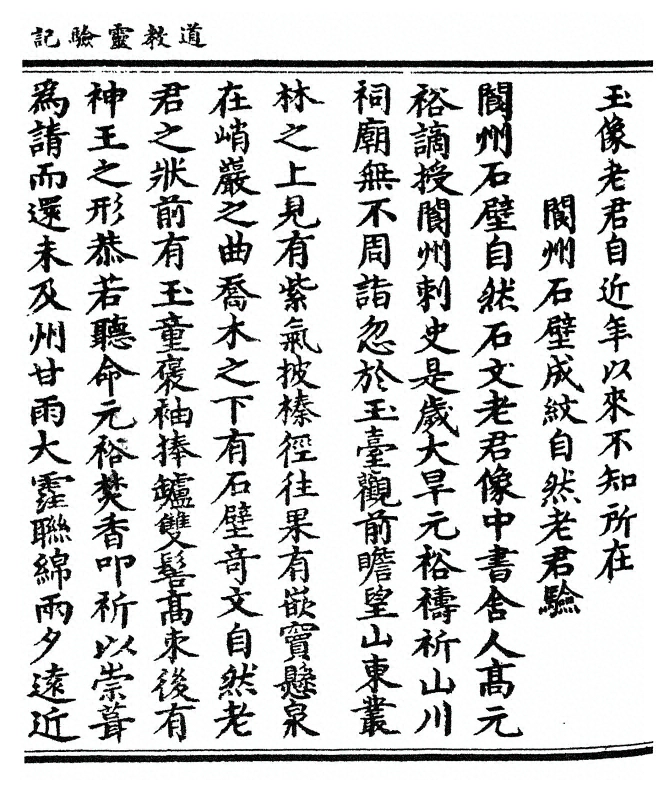 道教靈驗記
玉像老君自近年以來不知所在
閬州石壁成紋自然老君驗
閬州石壁自然石文老君像中書舍人高元
裕謫授閬州刺史是歲大旱元裕禱祈山川
祠廟無不周詣忽於玉臺觀前瞻望山東叢
林之上見有紫氣披榛徑往果有嵌竇懸泉
在峭巖之曲喬木之下有石壁奇文自然老
君之狀前有玉童褒袖捧鑪雙髻高束後有
神王之形恭若聽命元裕焚香叩祈以崇葺
為請而還未及州甘雨大霔聯綿兩夕遠近